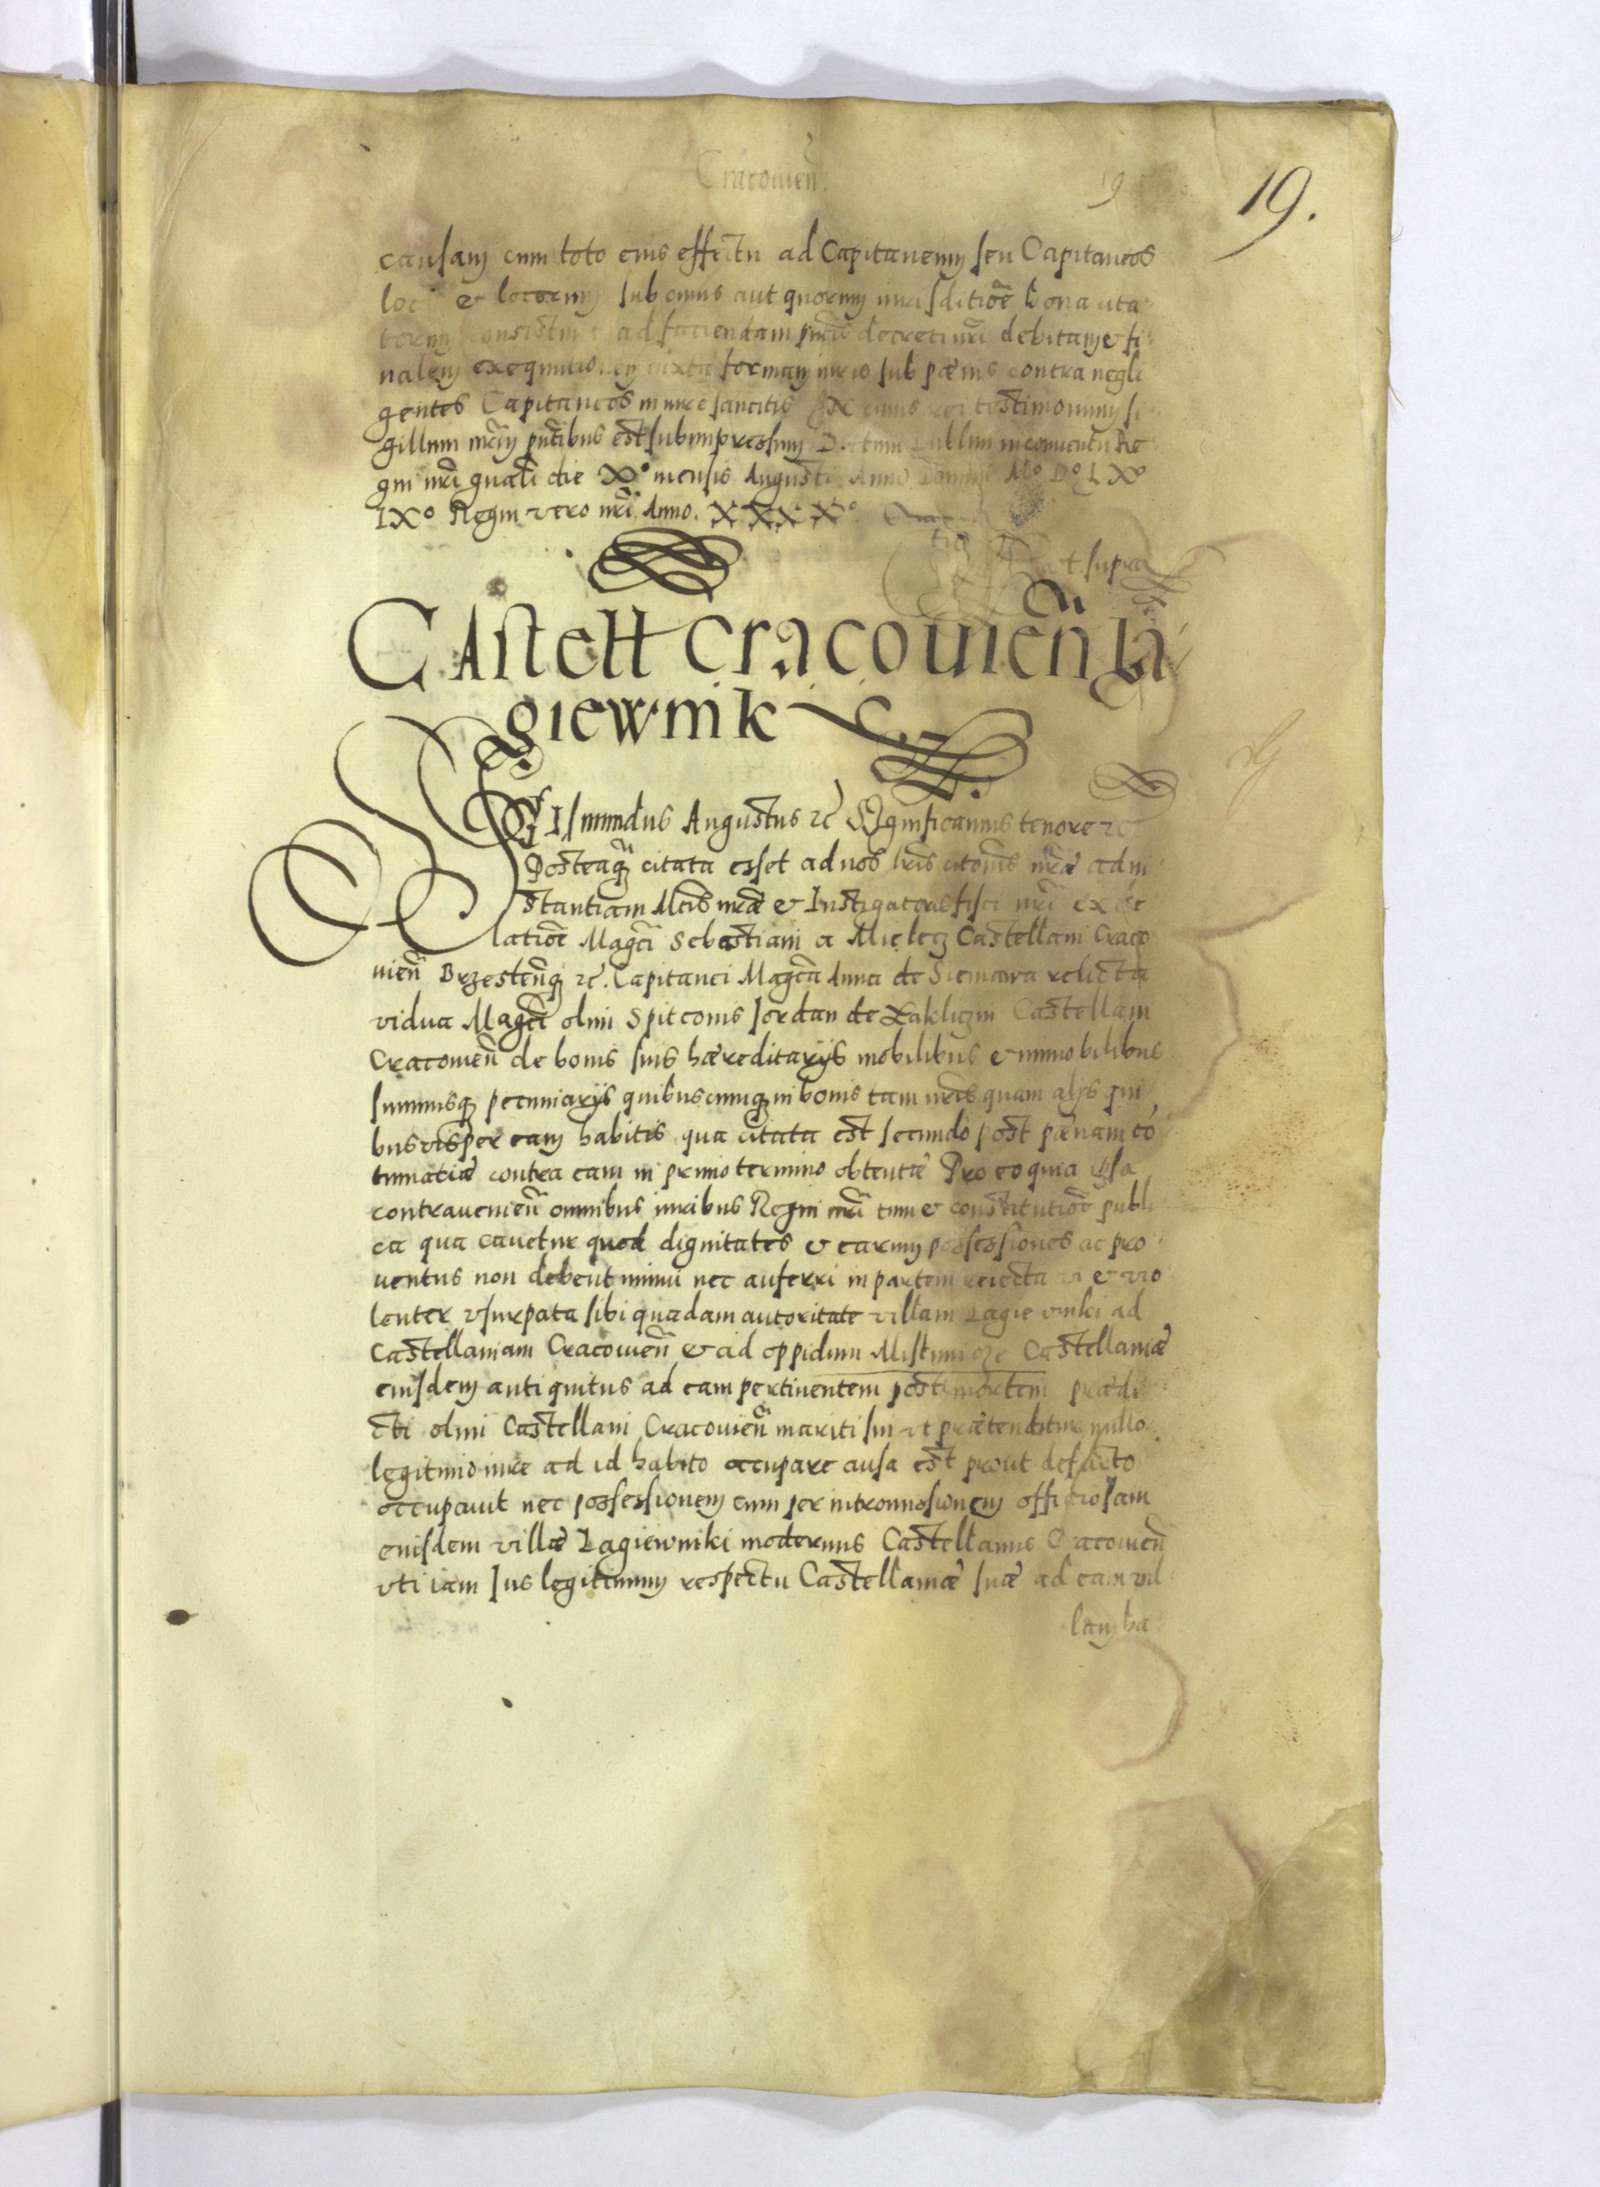 Cracouien̄.
19.
causam cum toto eius effectu ad Capitaneum seu Capitaneos
loci & locorum sub cuius aut quorum iurisditiōe bona cita
torum consistunt ad faciendam pn̄tis decreti nr̄i debitam & fi
nalem exequutionem iuxta formam iuris sub pænis contra negli
gentes Capitaneos in iure sancitis In cuius rei testimonium si
gillum nr̄m pn̄tibus est subimpressum Datum Lublini in conuentu Re
gni nr̄i gn̄ali die Xº mensis Augusti Anno Domini Mº Dº LXº
IXº Regni vero nr̄i Anno. XXXXº.
vt supra
CAstell Cracouien̄ ła
giewnik
SIgismundus Augustus &c Significamus tenore &c
Posteaq̄ citata esset ad nos lr̄is citōnis nr̄æ ad in
stantiam Mtis nr̄æ & Instigatoris fisci nr̄i ex de
latiōe Magc̄i Sebastiani a Mielecz Castellani Craco
uien̄ Brzestenq̄ &c. Capitanei Magc̄a Anna de Sieniawa relicta
vidua Magc̄i olim Spitconis Jordan de Zakliczin Castellani
Cracouien̄ de bonis suis hæreditarijs mobilibus & immobilibus
summisq̄ pecuniarijs quibuscunq̄ in bonis tam nr̄is quam alijs qui
busvis per eam habitis qua citata est secundo post pænam cō
tumatiæ contra eam in primo termino obtentæ Pro eo quia ipsa
contrauenien̄ omnibus iuribus Regni nr̄i tum & constitutiōe publi
ca qua cauetur quod dignitates & earum possessiones ac pro
uentus non debent minui nec auferri in partem reiecta vi & vio
lenter vsurpata sibi quadam autoritate villam Łagiewniki ad
Castellaniam Cracouien̄ & ad oppidum Castellaniæ
eiusdem antiquitus ad eam pertinentem post mortem prædi
cti olim Castellani Cracouien̄ mariti sui vt prætenditur nullo
legitimo iure ad id habito occupare ausa est prout defacto
occupauit nec possessionem cum per intromissionem officiosam
eiusdem villæ Łagiewniki modernus Castellanus Cracouien̄
vti iam Jus legitimum respectu Castellaniæ suæ ad eam vil
lam ha